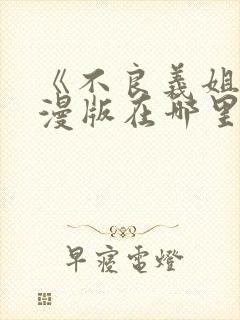 《不良義姐
漫版在哪里
早寢電燈